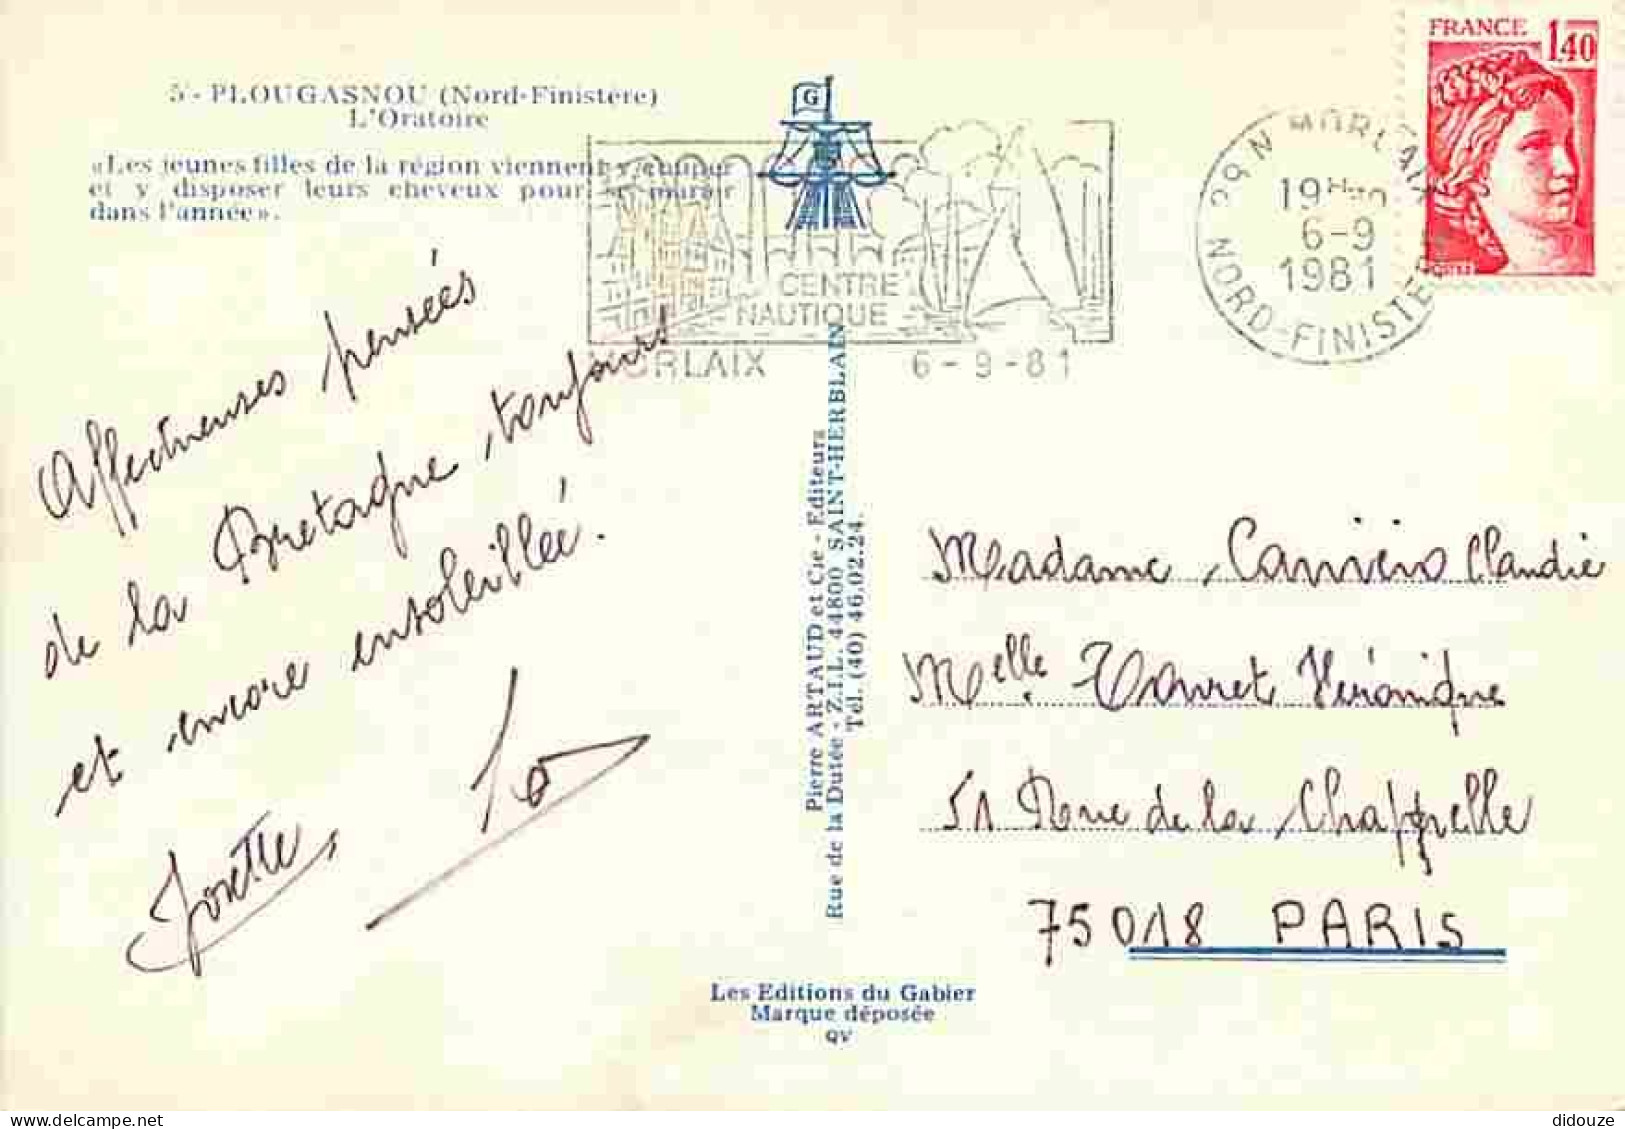 5 - PLOUGASNOU (Nord-Finistère)
L'Oratoire
«Les jeunes filles de la région viennent y couper
et y disposer leurs cheveux pour se marier
dans l'année».
G
FRANCE 1,40
29 N MORLAIX
19H
6-9
1981
NORD-FINISTERE
CENTRE
NAUTIQUE
MORLAIX 6-9-81
Affectueuses pensées
de la Bretagne toujours
et encore ensoleillée.
Josette
Pierre ARTAUD et Cie - Editeurs
Rue de la Dutée - Z.I.L. 44800 SAINT-HERBLAIN
Tél. (40) 46.02.24.
Madame Claudie
Melle Véronique
51 Rue de la Chappelle
75018 PARIS
Les Editions du Gabier
Marque déposée
QV
didouze